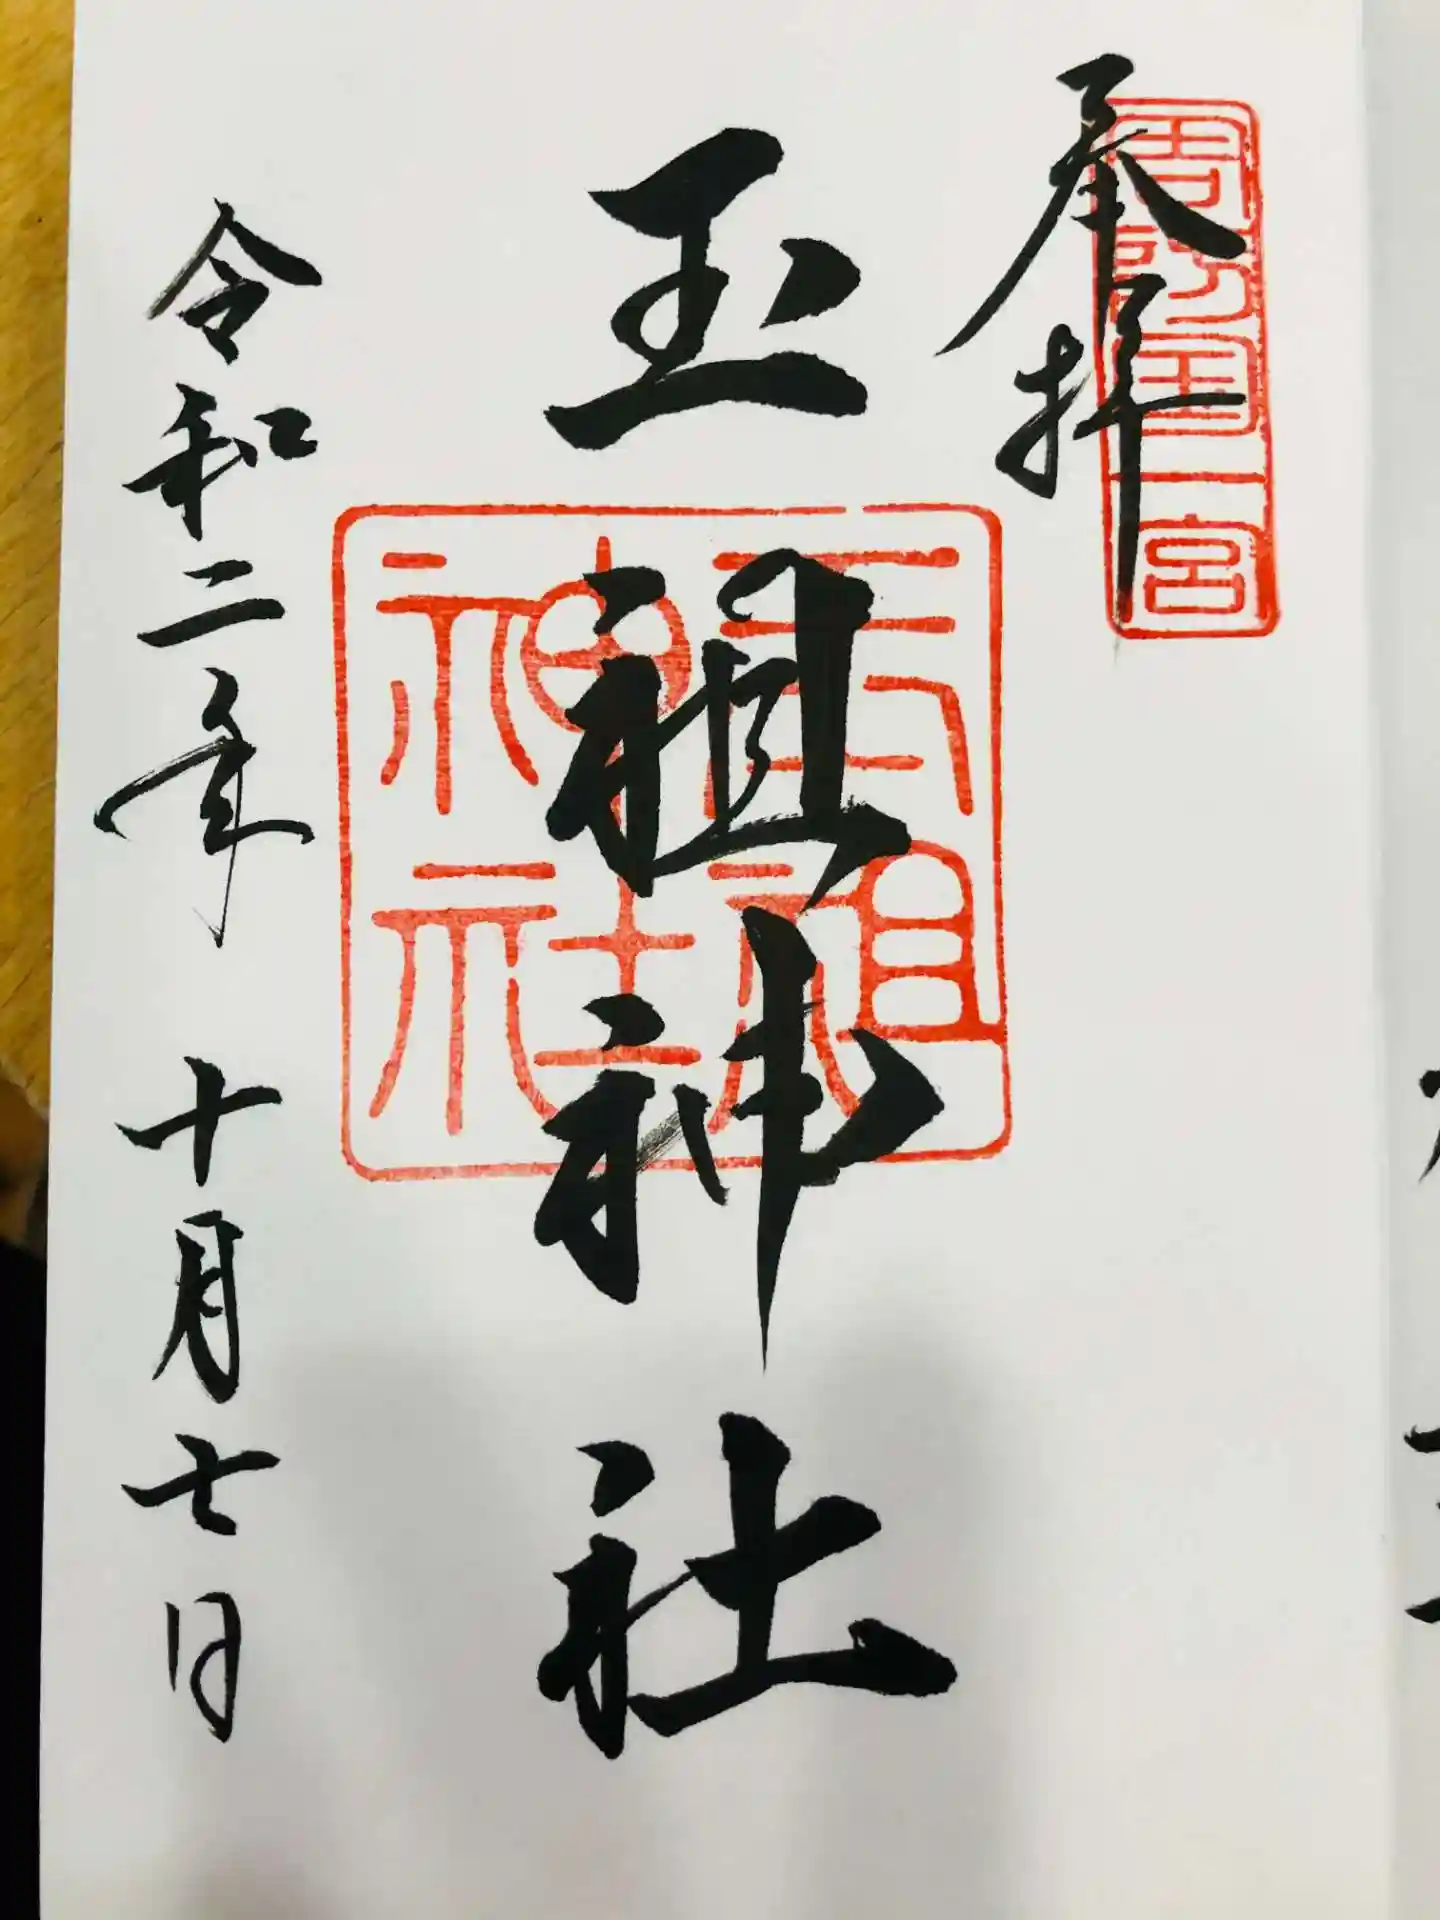 奉拝
周防国一宮
玉祖神社
玉祖神社
令和二年 十月七日